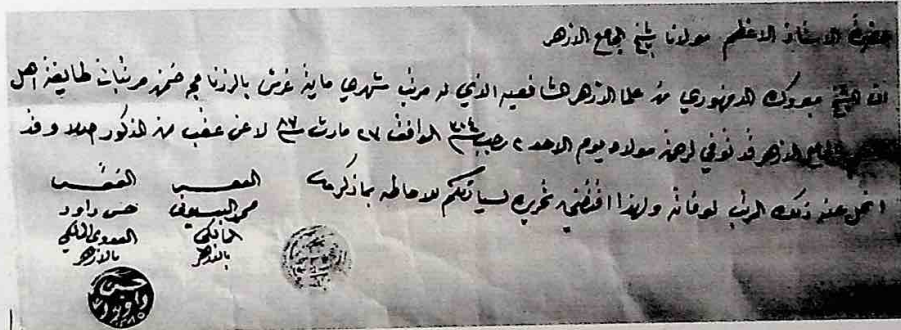 حضرة الاستاذ الاعظم مولانا شيخ الجامع الازهر
ان الشيخ مبروك الدمنهوري من علما الازهر الشافعيه الذي له مرتب شهري ماية غرش بالرزنامجه ضمن مرتبات طايفة اهل
الجامع الازهر قد توفي لرحمة مولاه يوم الاحد ٢ رجب سنة ٣٠٤ الموافق ٢٧ مارث سنة ٨٧ لا عن عقب من الذكور اصلا وقد
انحل عنه ذلك المرتب لوفاته ولهذا اقتضى تحريره لسيادتكم للاحاطه بماذكر
الفقير
محمد البسيوني
المالكي
بالازهر
الفقير
حسن داود
العدوي المالكي
بالازهر